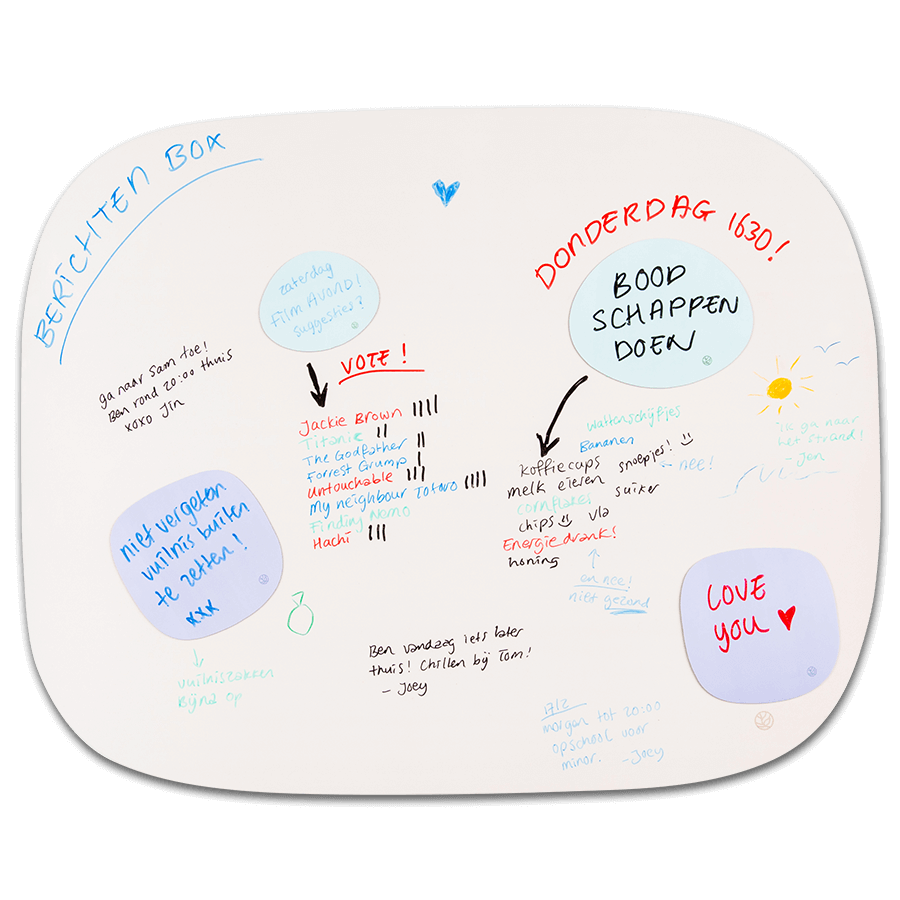 BERICHTEN BOX
zaterdag
Film AVOND!
suggesties?
VOTE!
Jackie Brown
Titanic
The Godfather
Forrest Grump
Untouchable
My neighbour Totoro
Finding Nemo
Hachi
DONDERDAG 1630!
BOOD
SCHAPPEN
DOEN
wattenschijfjes
Bananen
koffiecups snoepjes!
← nee!
melk eieren
cornflakes suiker
chips vla
Energiedrank!
honing
oh nee!
niet gezond
ik ga naar
het strand!
- Jen
ga naar Sam toe!
Ben rond 20:00 thuis
xoxo Jin
niet vergeten
vuilnis buiten
te zetten!
xxx
vuilniszakken
Bijna op
Ben vandaag iets later
thuis! Chillen bij Tom!
- Joey
LOVE
YOU
morgen tot 20:00
op school voor
minor. - Joey